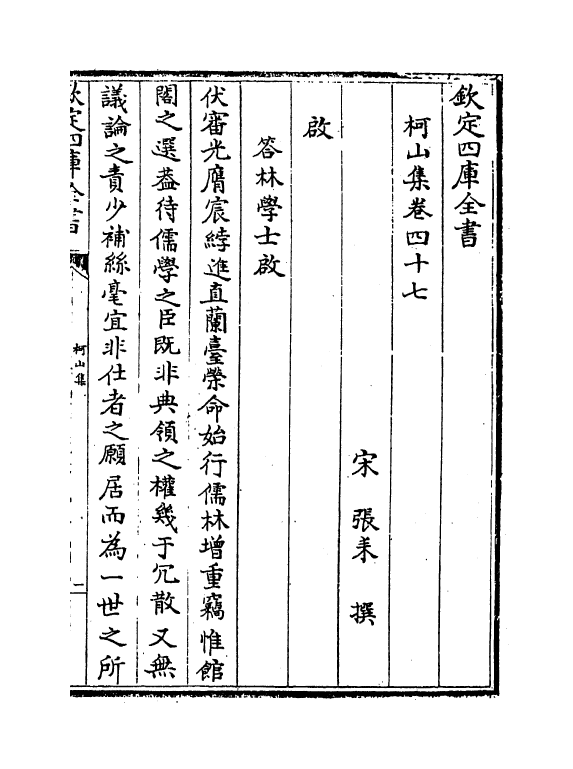 欽定四庫全書
柯山集卷四十七
宋 張耒 撰
啟
答林學士啟
伏審光膺宸綍進直蘭臺榮命始行儒林增重竊惟館
閣之選葢待儒學之臣既非典領之權幾于冗散又無
議論之責少補絲毫宜非仕者之願居而為一世之所
欽定四庫全書
柯山集